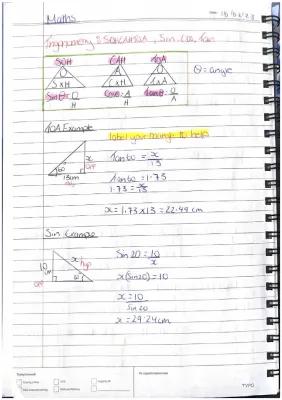 Maths
Trigonometry : SOHCAHTOA, Sin, Cos, Tan
SOH CAH TOA
O A O
S x H C x H T x A
Sinθ: O/H Cosθ: A/H Tanθ: O/A
θ = angle
TOA Example
label your triangle to help
x
60°
13cm
Tan 60 = x/13
Tan 60 = 1.73
1.73 = x/13
x = 1.73 x 13 = 22.49 cm
Sin Example
10cm
x hyp
opp
Sin 20 = 10/x
x(Sin20) = 10
x = 10/Sin20
x = 29.24cm
TYPO